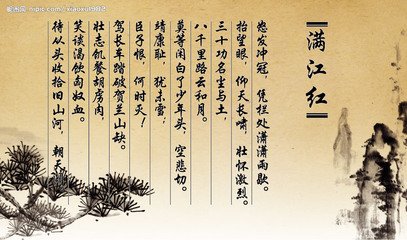 满江红
怒发冲冠,凭栏处潇潇雨歇。
抬望眼,仰天长啸,壮怀激烈。
三十功名尘与土,
八千里路云和月。
莫等闲白了少年头,空悲切。
靖康耻,犹未雪;
臣子恨,何时灭!
驾长车踏破贺兰山缺。
壮志饥餐胡虏肉,
笑谈渴饮匈奴血。
待从头收拾旧山河,朝天
昵图网 nipic.com/xiaoxu1982